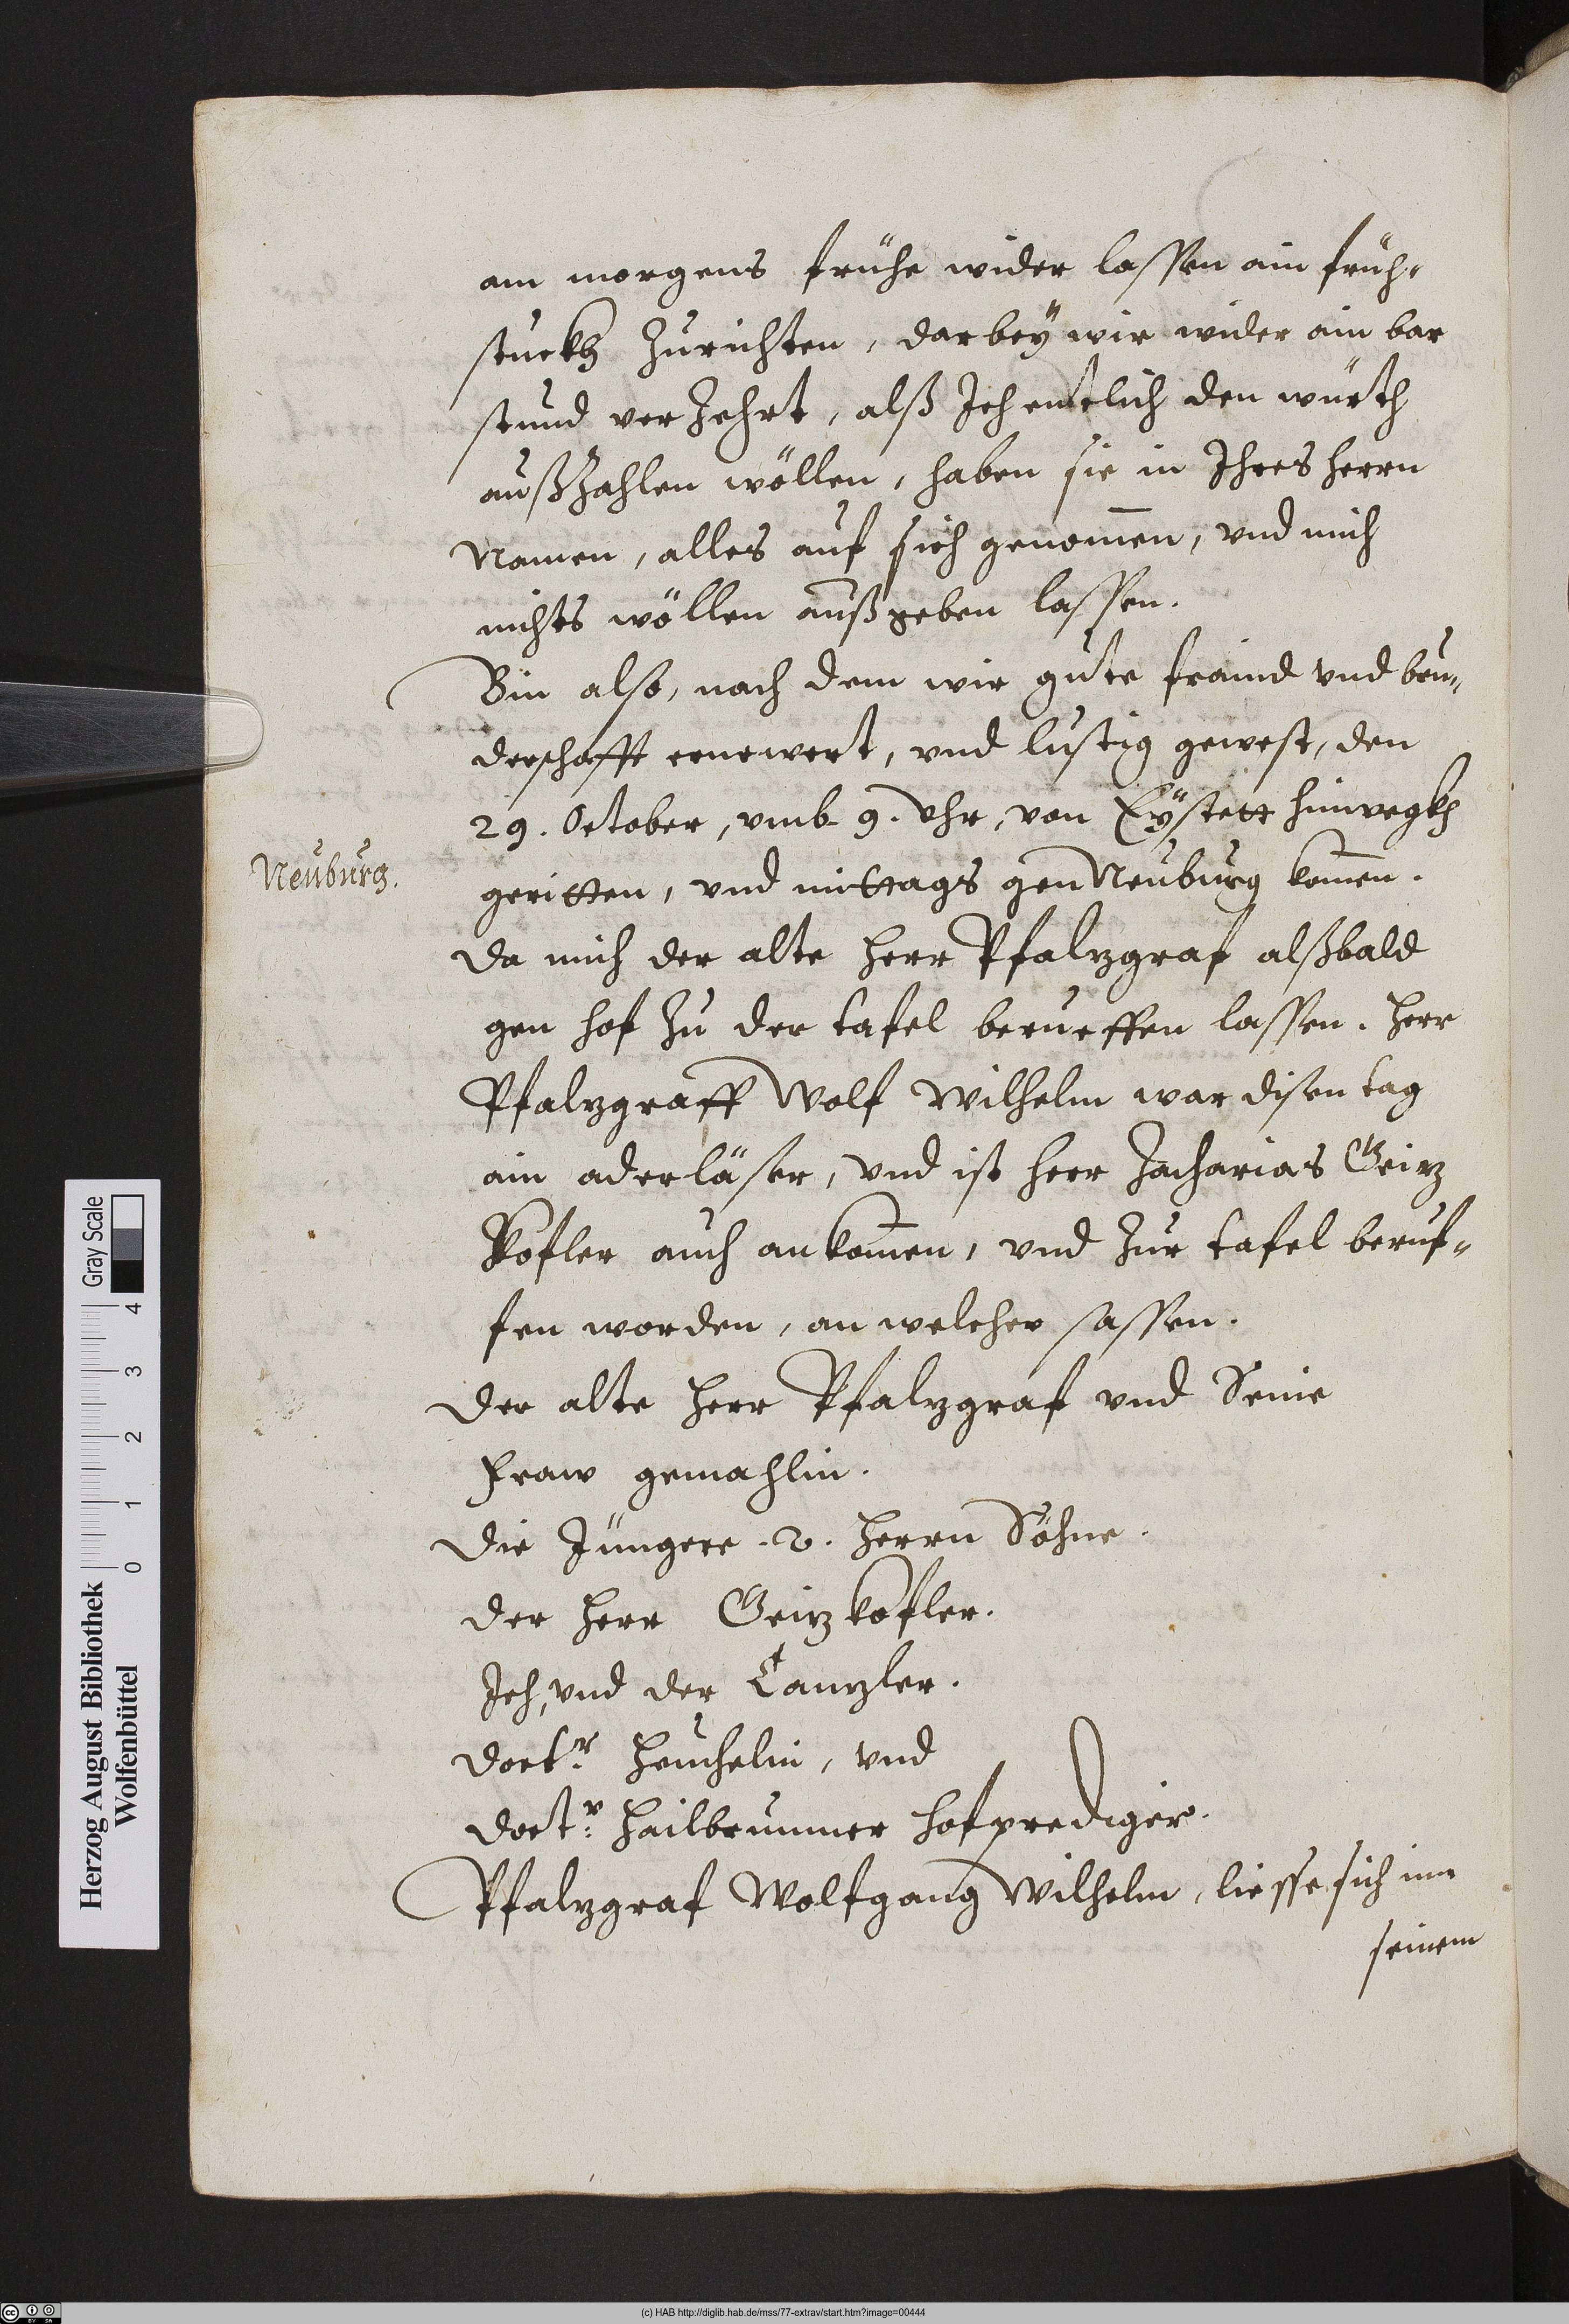 am morgens frühe wider lassen ain früh-
stuckh Zurichten, darbeÿ wir wider ain bar
stund verZehrt, alß Ich entlich den würth
außZahlen wöllen, haben sie in Ihres herrn
Namen, alles auf sich genom̄en, vnd mich
nichts wöllen außgeben lassen.
Bin also, nach dem wir gute fraind vnd bru-
derschafft ernewert, vnd lustig gewest, den
29. October, vmb 9. Vhr, von Eÿstett hinwegkh
Neuburg.
geritten, vnd mittags gen Neuburg kom̄en.
Da mich der alte herr Pfalzgraf alßbald
gen hof Zu der tafel berueffen lassen. Herr
Pfalzgraff Wolf Wilhelm war disen tag
ain aderläser, vnd ist herr Zacharias Geiz
Kofler auch ankom̄en, vnd Zur tafel beruf-
fen worden, an welcher sassen.
Der alte Herr Pfalzgraf vnd Seine
Fraw gemahlin.
Die Jüngere .2. Herrn Söhne.
Der Herr Geizkofler.
Ich, vnd der Canzler.
Doctr. Heuchelin, vnd
Doctr. Hailbrunner Hofprediger.
Pfalzgraf Wolfgang Wilhelm, liesse sich inn
seinem
Herzog August Bibliothek
Wolfenbüttel
0 1 2 3 4
Gray Scale
(c) HAB http://diglib.hab.de/mss/77-extrav/start.htm?image=00444